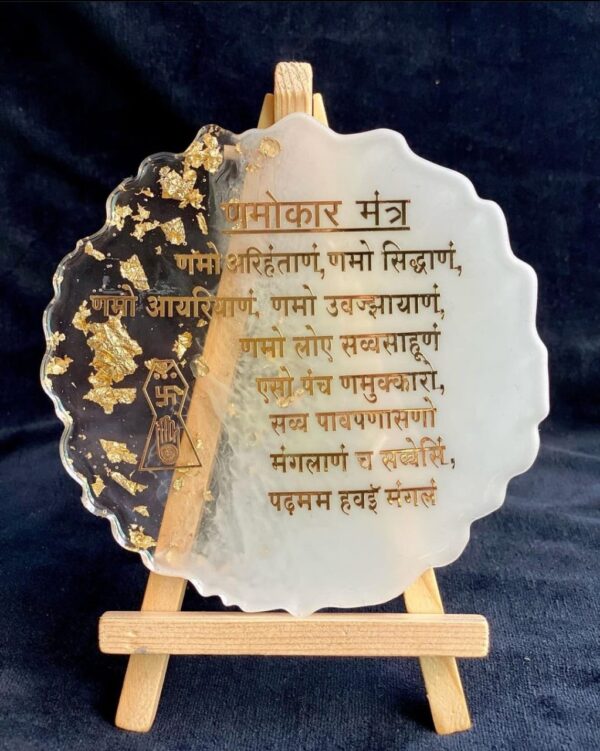 णमोकार मंत्र
णमो अरिहंताणं, णमो सिद्धाणं,
णमो आयरियाणं, णमो उवज्झायाणं,
णमो लोए सव्वसाहूणं
एसो पंच णमुक्कारो,
सव्व पावपणासणो
मंगलाणं च सव्वेसिं,
पढ़मम हवइॅ मंगलं